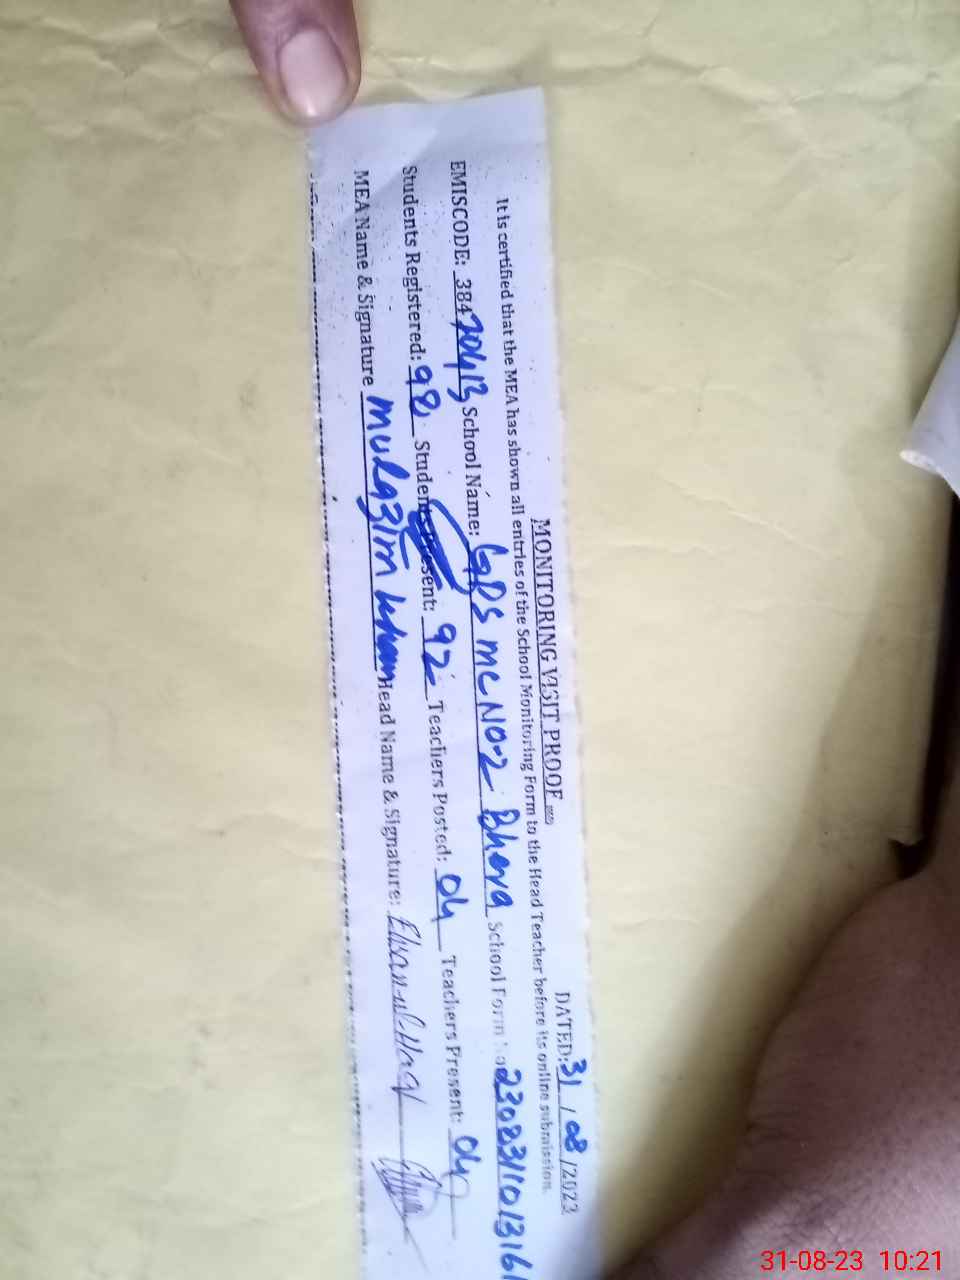 MONITORING VISIT PROOF
DATED: 31/08/2023
It is certified that the MEA has shown all entries of the School Monitoring Form to the Head Teacher before its online submission.
EMISCODE: 38470413 School Name: GPS MC NO-2 Bhera School Form No 230831101316
Students Registered: 98 Students Present: 92 Teachers Posted: 04 Teachers Present: 04
MEA Name & Signature Mulazim Khan Head Name & Signature: Ehsan-ul-Haq
31-08-23 10:21